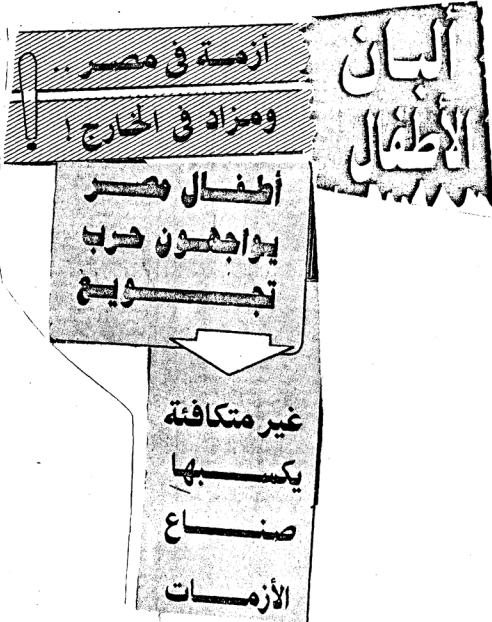 ألبان
الأطفال
أزمة فى مصر ..
ومزاد فى الخارج !
أطفال مصر
يواجهون حرب
تجويع
غير متكافئة
يكسبها
صناع
الأزمات